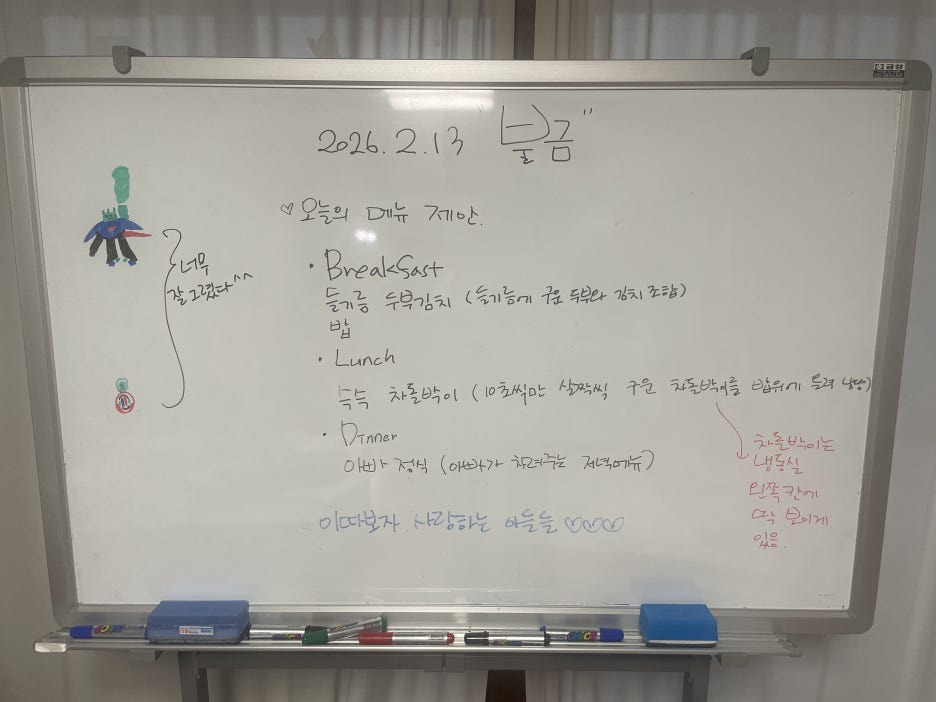 2026. 2. 13 "불금"
♡ 오늘의 메뉴 제안.
너무
잘 그렸다^^
• Breakfast
들기름 두부김치 (들기름에 구운 두부와 김치 조합)
밥
• Lunch
슥슥 차돌박이 (10초씩만 살짝씩 구운 차돌박이를 밥위에 올려 냠냠)
• Dinner
아빠 정식 (아빠가 차려주는 저녁메뉴)
차돌박이는
냉동실
왼쪽 칸에
딱 보이게
있음.
이따보자 사랑하는 아들들 ♡♡♡